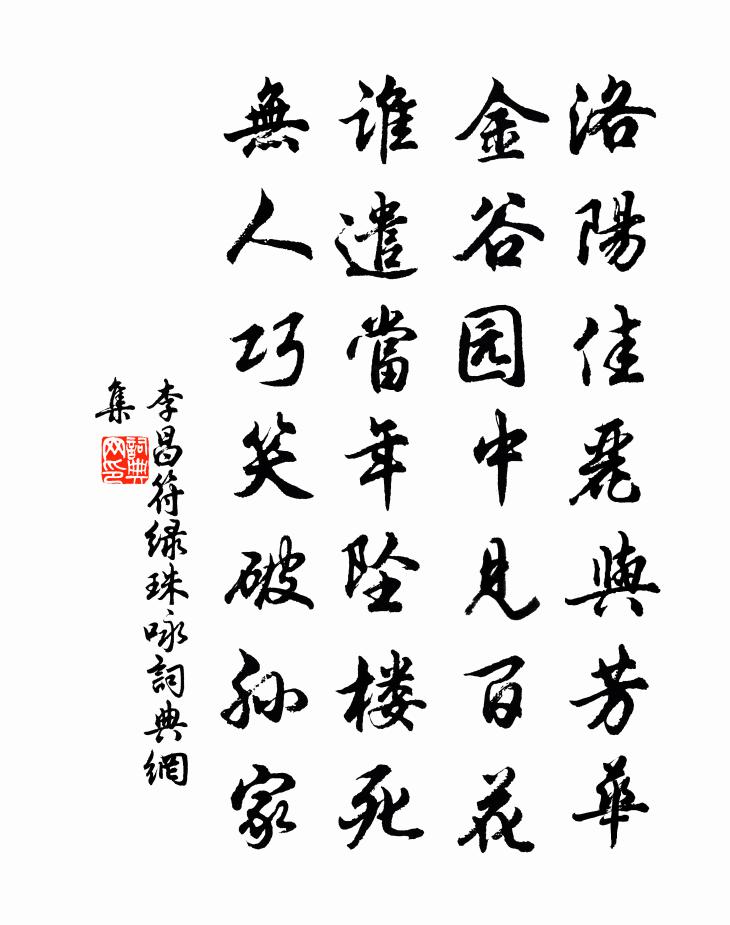 洛陽佳麗與芳華
金谷园中見百花
誰遣當年坠楼死
無人巧笑破孙家
李昌符緑珠咏詞典網
集
詞典
网印